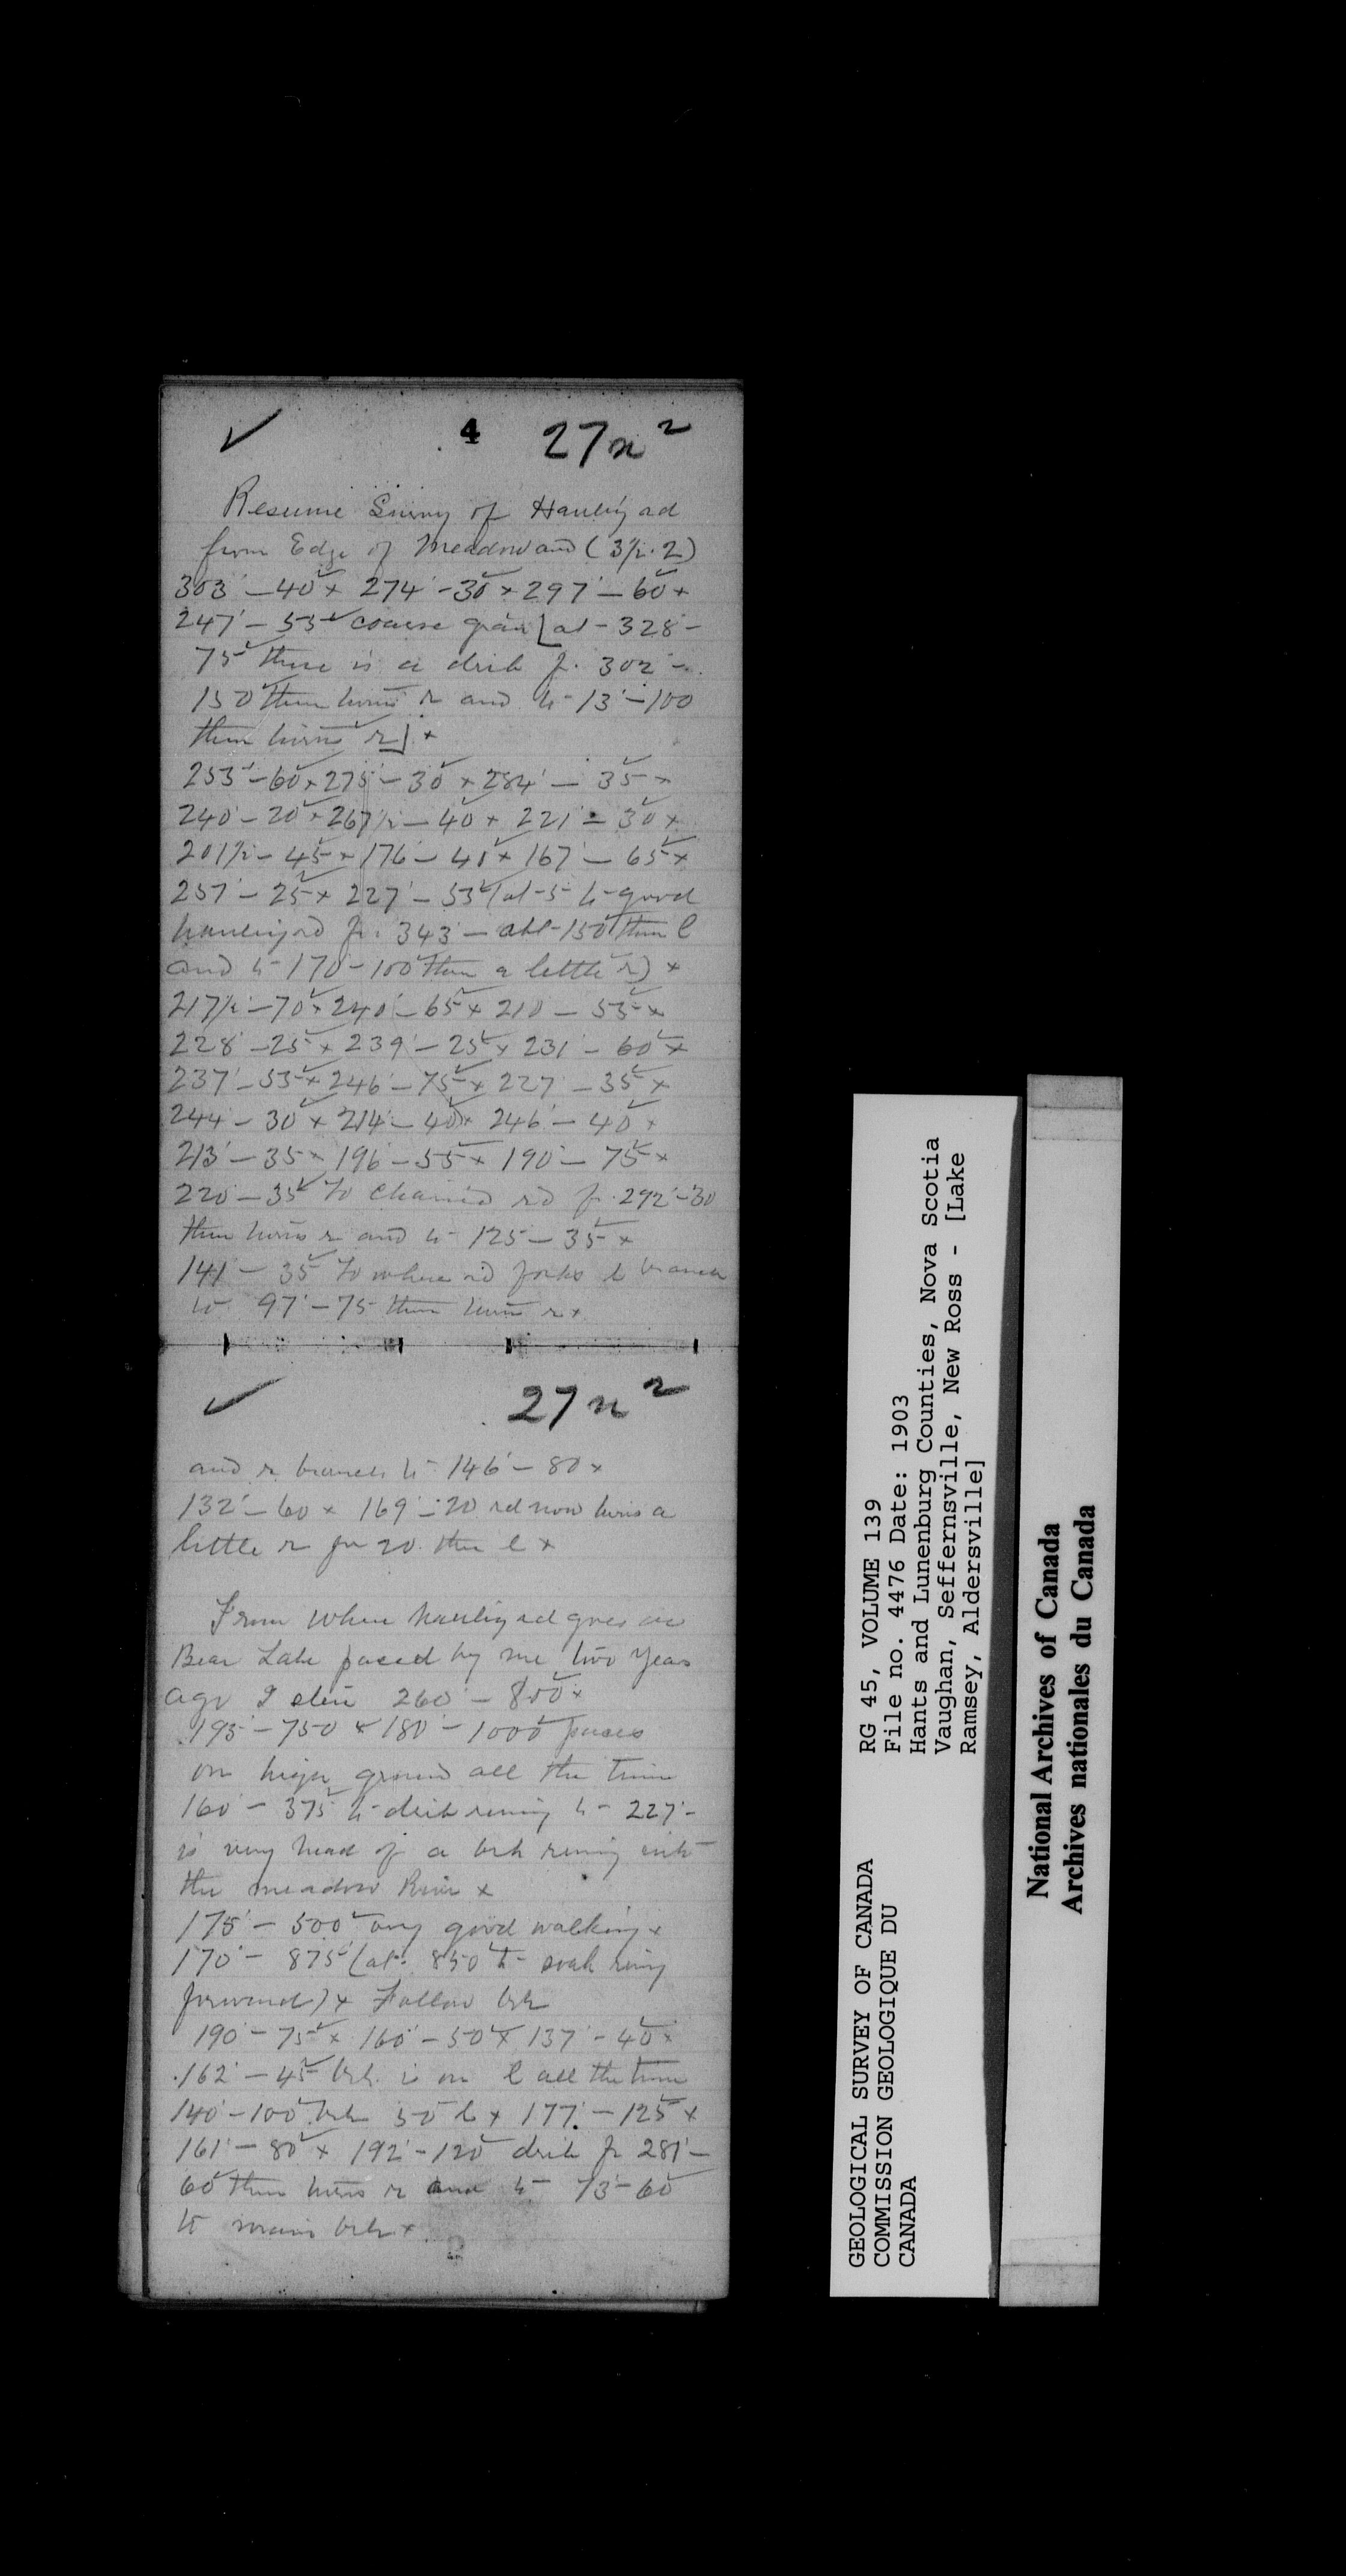 ✓ 4 27n²
Resume Survey of Hauling rd
from Edge of Meadow and (3½.2)
303° – 40 × 274° – 30 × 297° – 60 ×
247° – 55 coarse gran [at 328 –
75 there is a dich f. 302° –
150 then turns r and to 13° – 100
then turns r] ×
253° – 60 × 275° – 30 × 284° – 35 ×
240 – 20 × 267½ – 40 × 221° – 30 ×
201½ – 45 × 176° – 40 × 167° – 65 ×
257° – 25 × 227° – 55 (at 5 to good
hauling rd fr. 343° – abt 150 then l
and to 170 – 100 then a little r) ×
217½ – 70 × 240° – 65 × 210 – 55 ×
228° – 25 × 239° – 25 × 231° – 60 ×
237° – 55 × 246° – 75 × 227 – 35 ×
244 – 30 × 214° – 40 × 246° – 40 ×
213° – 35 × 196° – 55 × 190° – 75 ×
220 – 35 to chained rd fr. 292° – 30
then turns r and to 125 – 35 ×
141° – 35 to where rd forks l branch
to 97° – 75 then turns r ×
✓ 27n²
and r branch to 146° – 80 ×
132° – 60 × 169° – 20 rd now turns a
little r for 20 then l ×
From where hauling rd goes on
Bear Lake paced by me two years
ago I 260° – 800 ×
195° – 750 × 180° – 1000 paces
on high ground all the time
160° – 375 to dich runing to 227° –
is very head of a brk runing into
the meadow River ×
175° – 500 very good walking ×
170° – 875 (at 850 to soak runing
forward) × Follow brk
190° – 75 × 160° – 50 × 137° – 40 ×
162° – 45 brk. is on l all the time
140° – 100 brk 50 l × 177° – 125 ×
161° – 80 × 192° – 120 dich fr 281° –
60 then turns r and to 73° – 60
to main brk ×
GEOLOGICAL SURVEY OF CANADA
COMMISSION GEOLOGIQUE DU
CANADA
RG 45, VOLUME 139
File no. 4476 Date: 1903
Hants and Lunenburg Counties, Nova Scotia
Vaughan, Seffernsville, New Ross - [Lake
Ramsey, Aldersville]
National Archives of Canada
Archives nationales du Canada